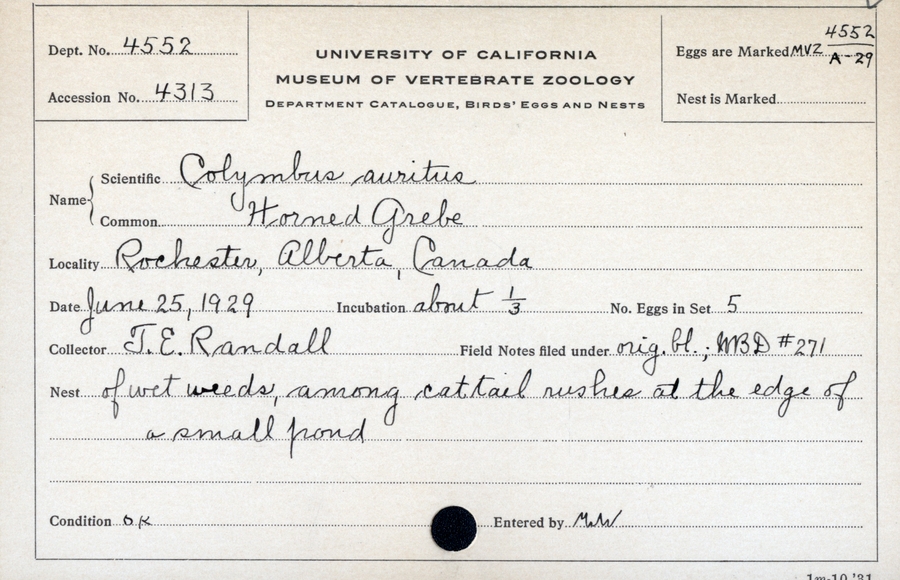 Dept. No. 4552
Accession No. 4313
UNIVERSITY OF CALIFORNIA
MUSEUM OF VERTEBRATE ZOOLOGY
DEPARTMENT CATALOGUE, BIRDS' EGGS AND NESTS
Eggs are Marked MVZ 4552
A-29
Nest is Marked
Name
Scientific Colymbus auritus
Common Horned Grebe
Locality Rochester, Alberta, Canada
Date June 25, 1929 Incubation about 1/3 No. Eggs in Set 5
Collector T. E. Randall Field Notes filed under orig. bl.; WBD #271
Nest of wet weeds, among cattail rushes at the edge of
a small pond
Condition OK Entered by
1m-10,'31